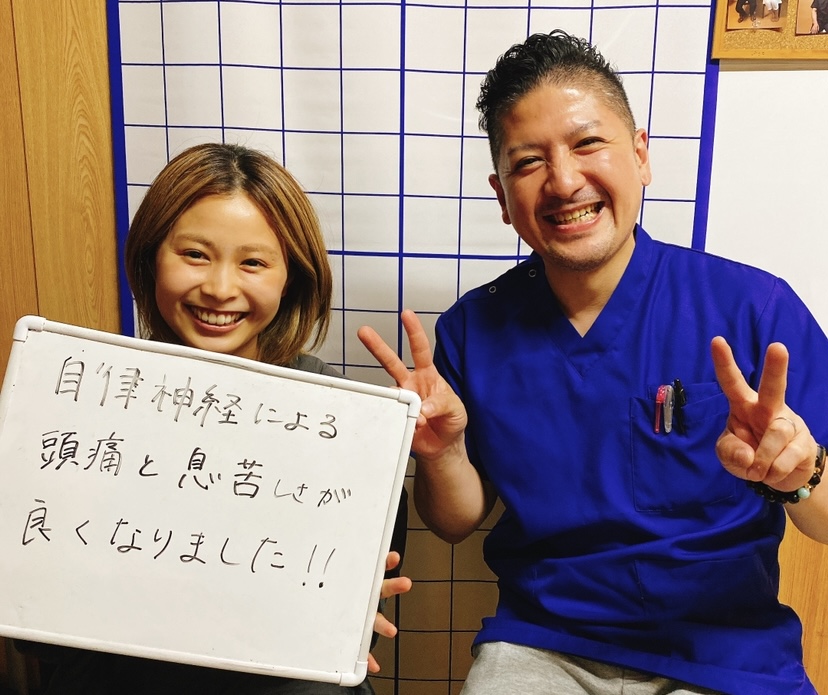 自律神経による
頭痛と息苦しさが
良くなりました!!